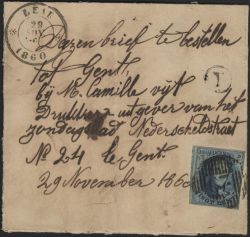 1860
Dezen brief te bestellen
tot Gent.
bij M. Camille vijt
Drukker uitgever van het
zondagsblad Nederscheldestraat
No 24 te Gent.
29 November 1860